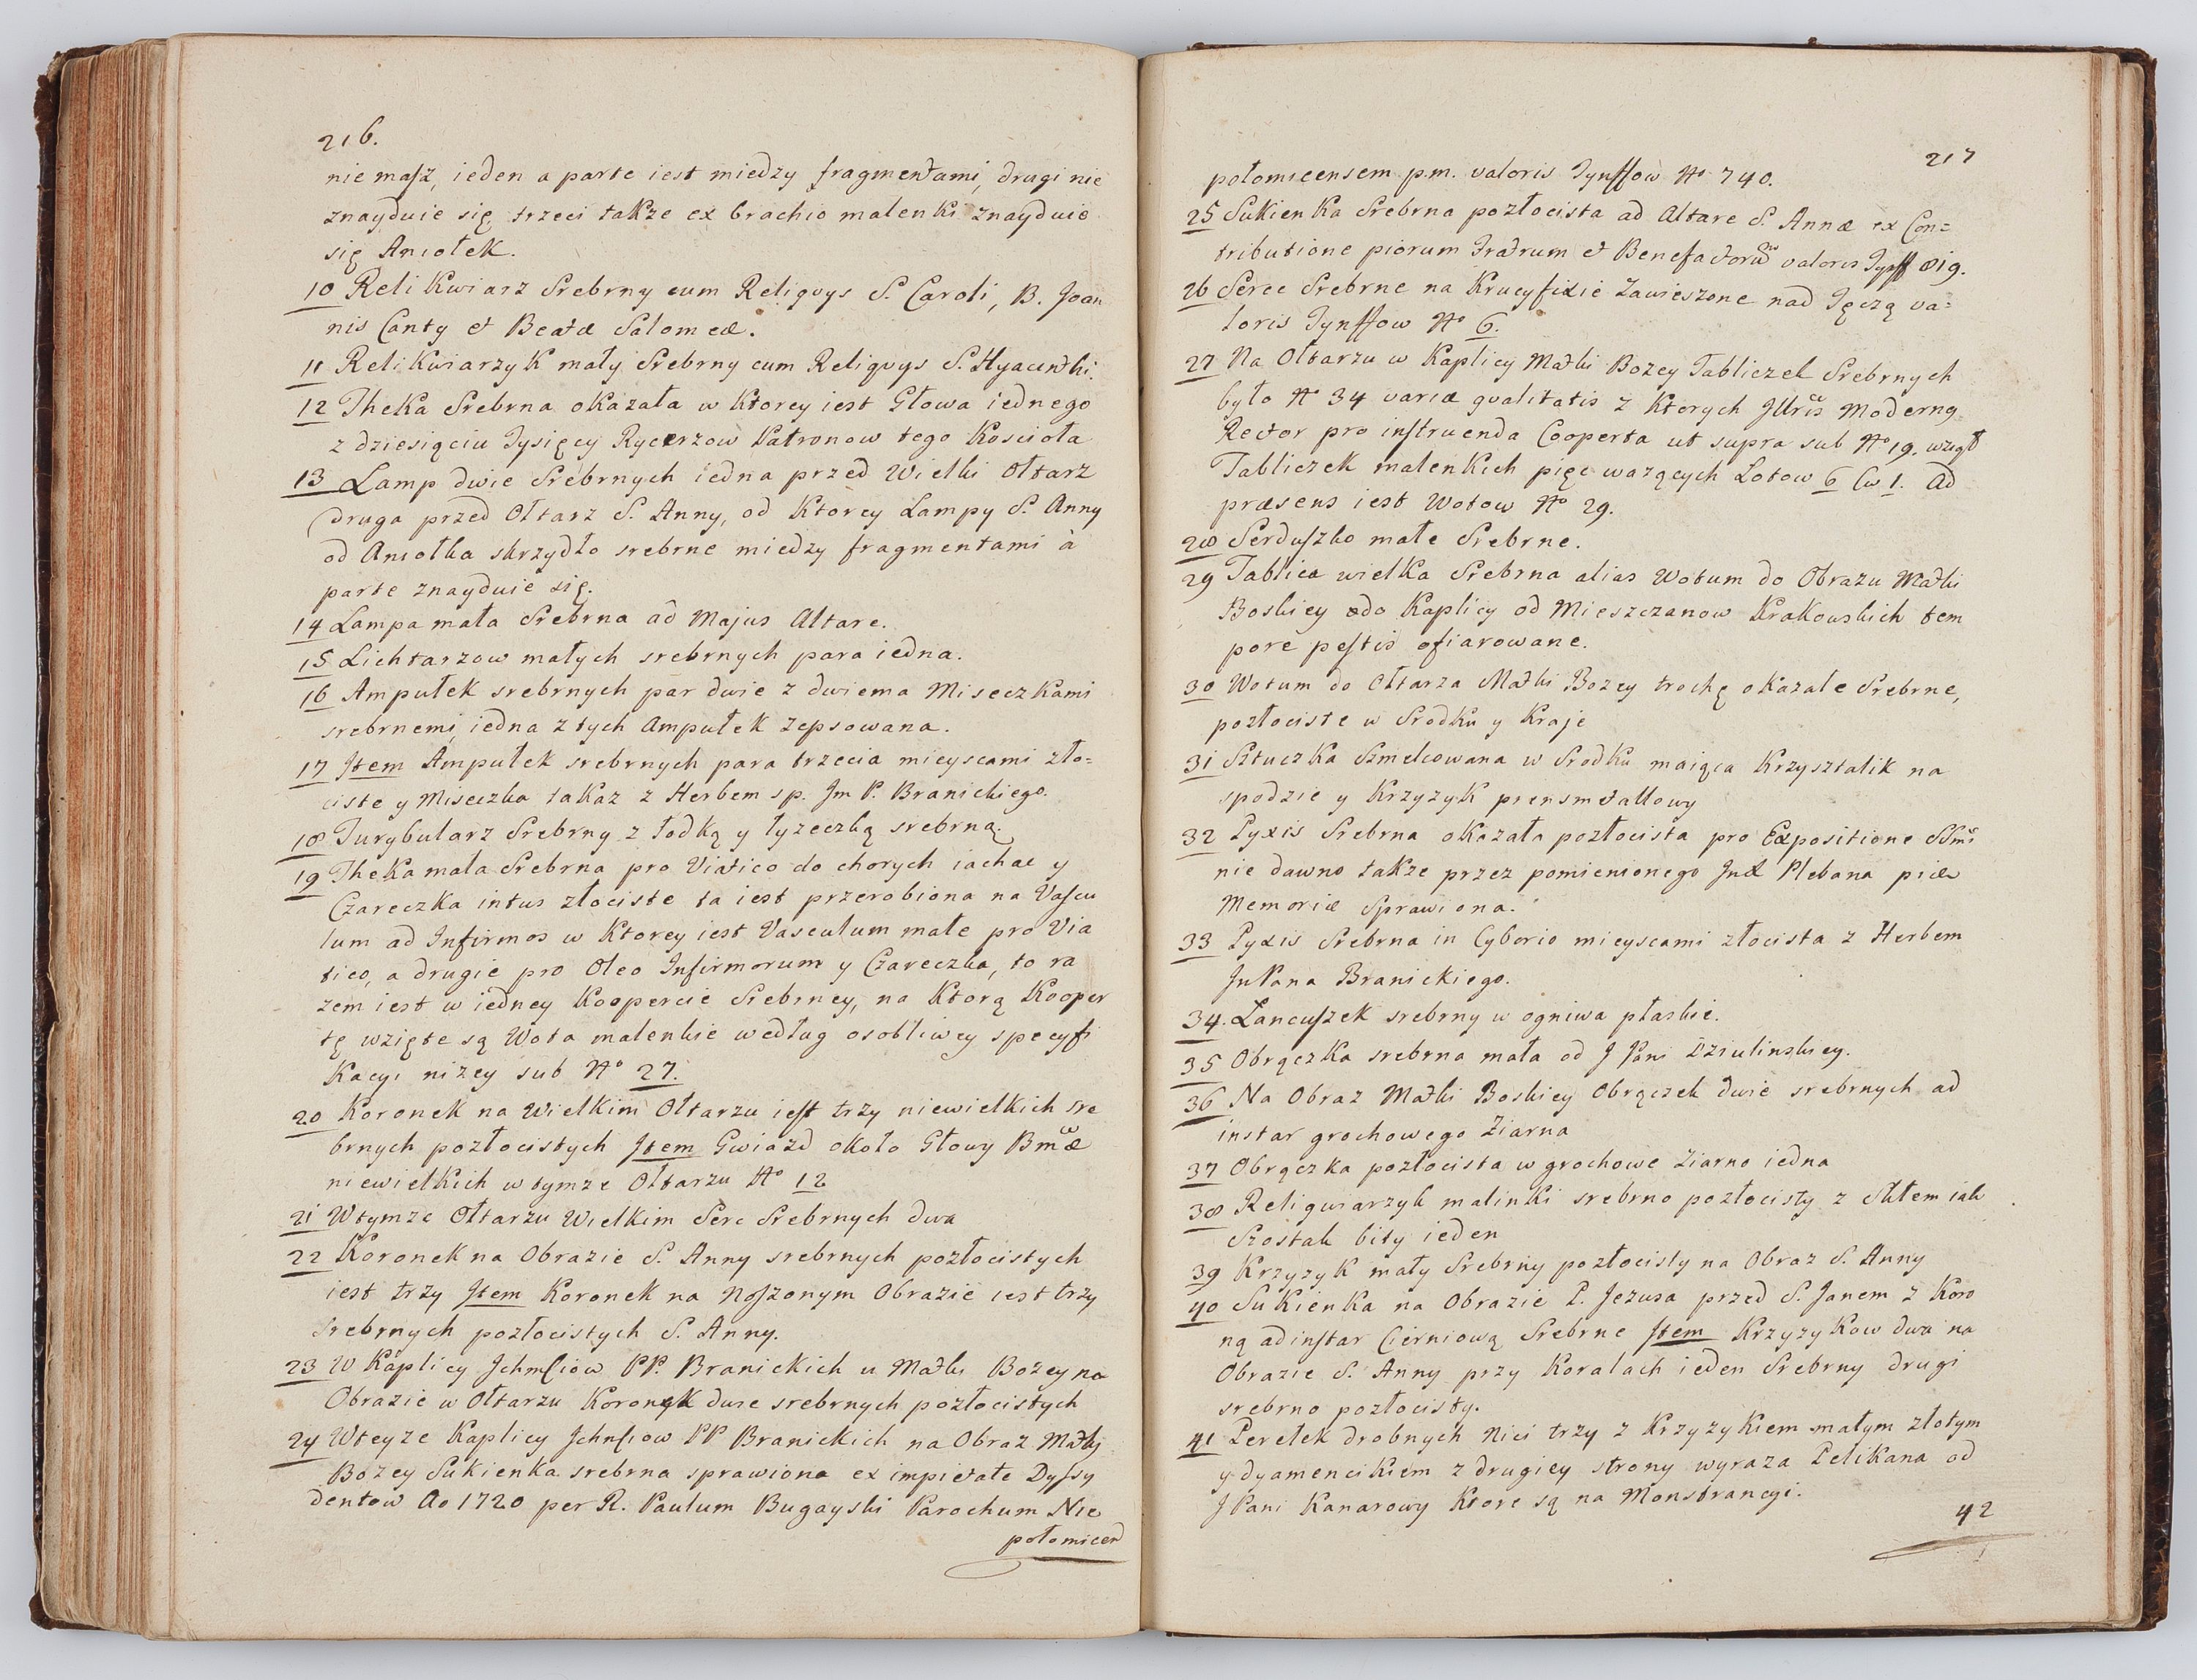 216.
nie masz, ieden a parte iest miedzy fragmentami, drugi nie
znayduie się trzeci także ex brachio malenki znayduie
się Aniołek.
10 Relikwiarz Srebrny cum Reliqvys S. Caroli, B. Joan
nis Canty et Beatæ Salomeæ.
11 Relikwiarzyk mały Srebrny cum Reliqvys S. Hyacinthi.
12 Theka Srebrna okazała w Ktorey iest Głowa iednego
z dziesiąciu Tysięcy Rycerzow Patronow tego Koscioła
13 Lamp dwie Srebrnych iedna przed Wielki Ołtarz
druga przed Ołtarz S. Anny, od Ktorey Lampy S. Anny
od Aniołka skrzydło srebrne miedzy fragmentami à
parte znayduie się.
14 Lampa mała Srebrna ad Majus Altare.
15 Lichtarzow małych srebrnych para iedna.
16 Ampułek srebrnych par dwie z dwiema Miseczkami
srebrnemi, iedna z tych Ampułek zepsowana.
17 Item Ampułek srebrnych para trzecia mieyscami zło=
ciste y Miseczka takaz z Herbem sp. Jm P. Branickiego.
18 Turybularz Srebrny z łodką y łyzeczką srebrną.
19 Theka mała Srebrna pro Viatico do chorych iachac y
Czareczka intus złociste ta iest przerobiona na Vascu
lum ad Infirmos w Ktorey iest Vasculum małe pro Via
tico, a drugie pro Oleo Infirmorum y Czareczka, to ra
zem iest w iedney Koopercie Srebrney, na Ktorą Kooper
tę wzięte są Wota malenkie według osobliwey specyfi
Kacyi nizey sub No 27.
20 Koronek na Wielkim Ołtarzu iest trzy niewielkich sre
brnych pozłocistych Item Gwiazd około Głowy Bmæ
niewielkich w tymze Ołtarzu No 12
21 Wtymze Ołtarzu Wielkim Serc Srebrnych dwa
22 Koronek na Obrazie S. Anny srebrnych pozłocistych
iest trzy Item Koronek na Noszonym Obrazie iest trzy
srebrnych pozłocistych S. Anny.
23 W Kaplicy Ichmciow PP. Branickich u Matki Bozey na
Obrazie w Ołtarzu Koronek dwie srebrnych pozłocistych
24 Wteyze Kaplicy Ichmciow PP Branickich na Obraz Matki
Bozey Sukienka srebrna sprawiona ex impietate Dyssy
dentow Ao 1720 per R. Paulum Bugayski Parochum Nie
połomicen
217
połomicensem p.m. valoris Tynffow No 740.
25 Sukienka Srebrna pozłocista ad Altare S. Annæ ex Con=
tributione piorum Fratrum et Benefactorū valoris Tynff 819.
26 Serce Srebrne na Krucyfixie Zawieszone nad Tęczą va=
loris Tynffow No 6.
27 Na Ołtarzu w Kaplicy Matki Bozey Tabliczek Srebrnych
było No 34 variæ qvalitatis z Ktorych Jllris Modernq
Rector pro instruenda Cooperta ut supra sub No 19. wziął
Tabliczek malenkich pięc wazących Lotow 6 Cw 1. Ad
præsens iest Wotow No 29.
28 Serduszko małe Srebrne.
29 Tablica wielka Srebrna alias Wotum do Obrazu Matki
Boskiey do Kaplicy od Mieszczanow Krakowskich tem
pore pestis ofiarowane.
30 Wotum do Ołtarza Matki Bozey trochę okazałe Srebrne,
pozłociste w Srodku y Kraje
31 Sztuczka Szmelcowana w Srodku maiąca Krzysztalik na
spodzie y Krzyzyk prensmetallowy
32 Pyxis Srebrna okazała pozłocista pro Expositione SSmi
nie dawno takze przez pomienionego Jnd Plebana piæ
Memoriæ Sprawiona.
33 Pyxis Srebrna in Cyborio mieyscami złocista z Herbem
JnPana Branickiego.
34. Lancuszek srebrny w ogniwa płaskie.
35 Obrączka srebrna mała od J Pani Dziulinskiey.
36 Na Obraz Matki Boskiey Obrączek dwie srebrnych ad
instar grochowego Ziarna
37 Obrączka pozłocista w grochowe Ziarno iedna
38 Religwiarzyk malinki srebrno pozłocisty z Skłem iak
Szostak bity ieden
39 Krzyzyk mały Srebrny pozłocisty na Obraz S. Anny
40 Sukienka na Obrazie P. Jezusa przed S. Janem z Koro
ną adinstar Cierniową Srebrne Item Krzyzykow dwa na
Obrazie S. Anny przy Koralach ieden Srebrny drugi
srebrno pozłocisty.
41 Perełek drobnych Nici trzy z Krzyzykiem małym złotym
y dyamencikiem z drugiey strony wyraza Pelikana od
JPani Kanarowy Ktore są na Monstrancyi.
42